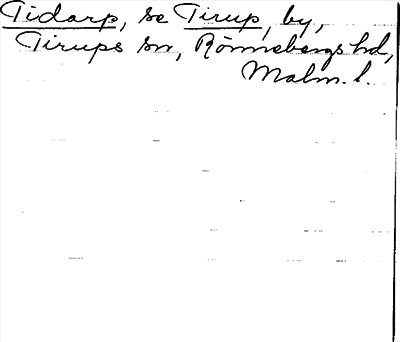 Tidarp, se Tirup, by,
Tirups sn, Rönnebergs hd,
Malm. l.